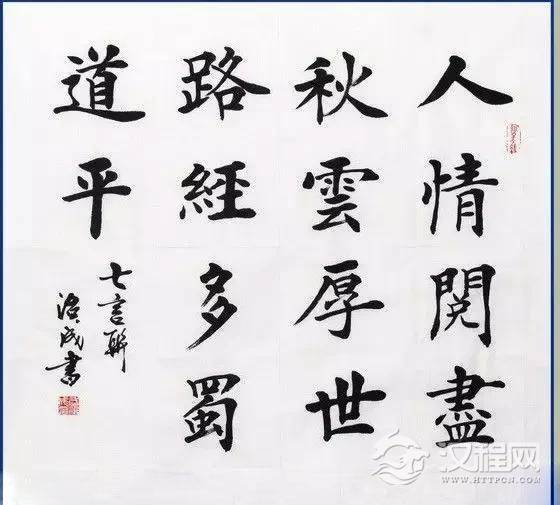 人情閱盡
秋雲厚世
路經多蜀
道平
七言聯
成書
汉程网
WWW.HTTPCN.COM